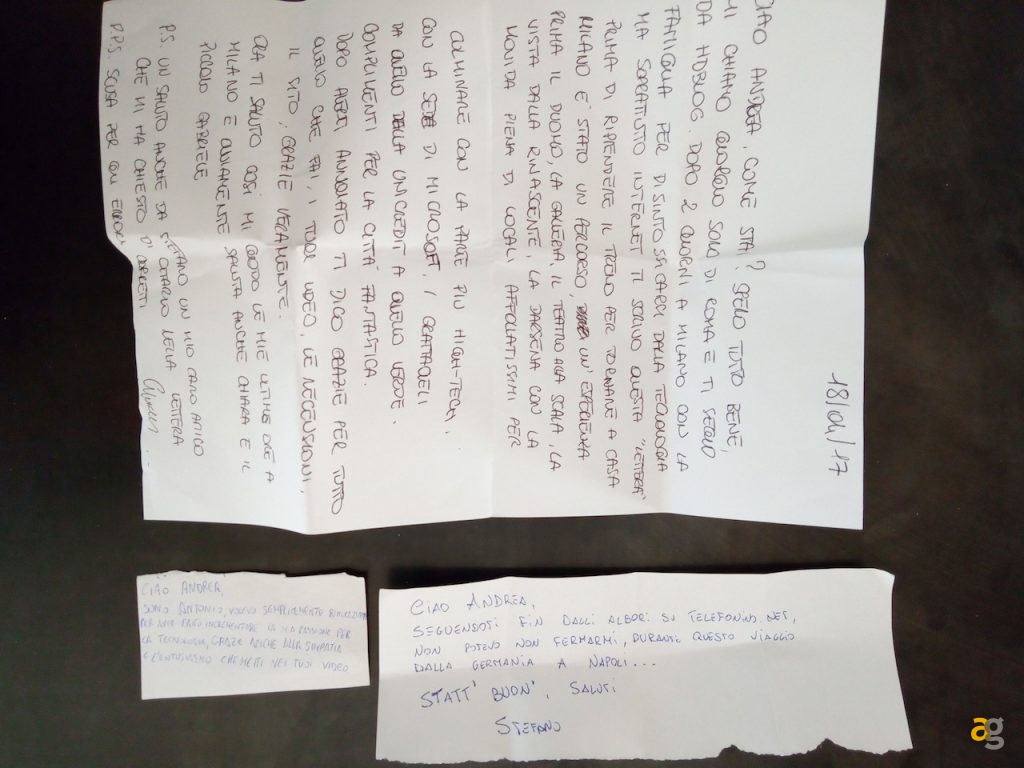 18/04/17
CIAO ANDREA, COME STA? SPERO TUTTO BENE,
MI CHIAMO GIORGIO SONO DI ROMA E TI SEGUO
DA HDBLOG. DOPO 2 GIORNI A MILANO CON LA
FAMIGLIA PER DISINTOSSICARCI DALLA TECNOLOGIA
MA SOPRATTUTTO INTERNET TI SCRIVO QUESTA "LETTERA"
PRIMA DI RIPRENDERE IL TRENO PER TORNARE A CASA
MILANO È STATO UN PERCORSO, UN'ESPERIENZA
PRIMA IL DUOMO, LA GALLERIA, IL TEATRO ALLA SCALA, LA
VISTA DALLA RINASCENTE, LA DARSENA CON LA
MOVIDA PIENA DI LOCALI AFFOLLATISSIMI PER
CULMINARE CON LA PARTE PIÙ HIGH-TECH,
CON LA SEDE DI MICROSOFT, I GRATTACIELI
DA QUELLO DELLA UNICREDIT A QUELLO VERDE.
COMPLIMENTI PER LA CITTÀ FANTASTICA.
DOPO AVERTI ANNOIATO TI DICO GRAZIE PER TUTTO
QUELLO CHE FAI, I TUOI VIDEO, LE RECENSIONI,
IL SITO, GRAZIE VERAMENTE.
ORA TI SALUTO COSÌ MI GODO LE MIE ULTIME ORE A
MILANO E OVVIAMENTE SALUTA ANCHE CHIARA E IL
PICCOLO GABRIELE
P.S. UN SALUTO ANCHE DA UN MIO CARO AMICO
CHE MI HA CHIESTO DI CITARLO NELLA LETTERA
P.P.S. SCUSA PER GLI ERRORI
CIAO ANDREA,
SONO ANTONIO, VOLEVO SEMPLICEMENTE RINGRAZIARTI
PER AVER FATTO INCREMENTARE LA MIA PASSIONE PER
LA TECNOLOGIA, GRAZIE ANCHE ALLA SIMPATIA
E L'ENTUSIASMO CHE METTI NEI TUOI VIDEO
CIAO ANDREA,
SEGUENDOTI FIN DAGLI ALBORI SU TELEFONINO.NET,
NON POTEVO NON FERMARMI, DURANTE QUESTO VIAGGIO
DALLA GERMANIA A NAPOLI...
STATT' BUON', SALUTI
STEFANO
ag